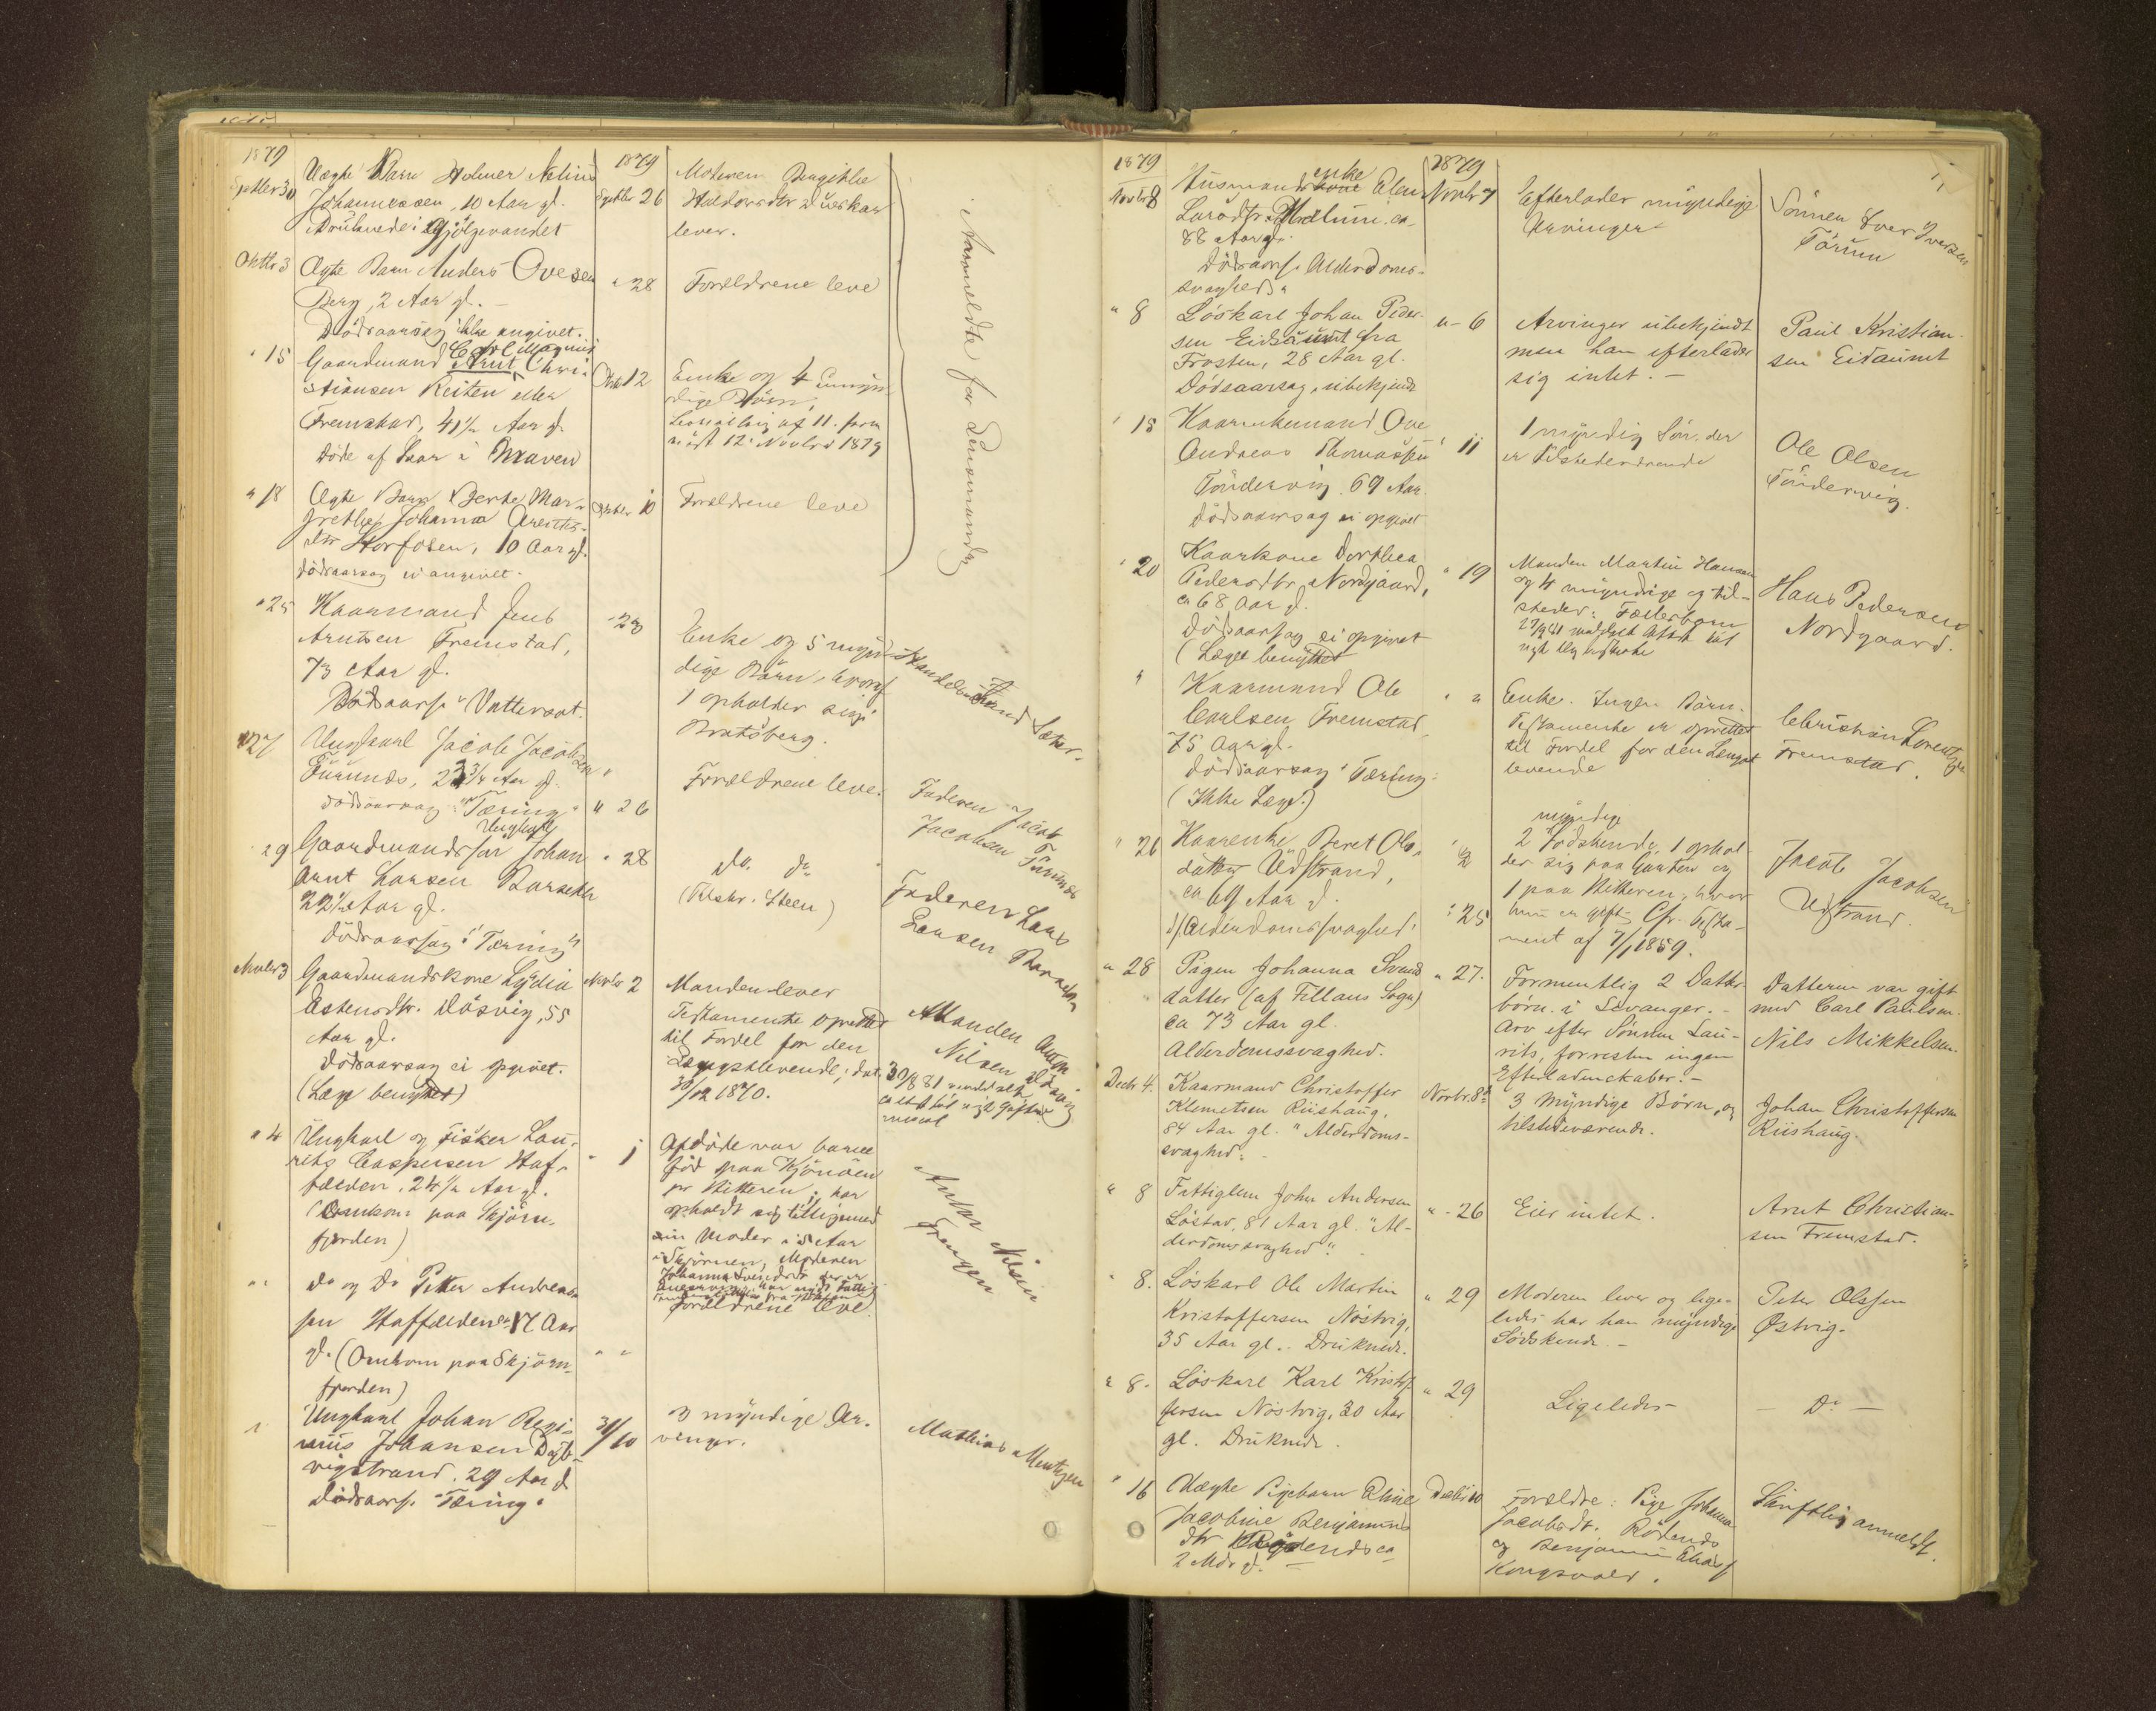 1879
1879
Septbr 30
Uægte Barn Holmer Nelius
Johannessen, 10 Aar gl.
Druknede i
Septbr 26
Moderen
lever.
Anmeldte for Lensmanden
Oktbr 3
Ægte Barn Anders Ovesen
Berg, 2 Aar gl. -
Dödsaarsag ikke angivet.
" 28
Forældrene leve
" 15
Carl Magnus
Gaardmand Arnt Chri-
stiansen Reiten eller
Fremstad, 41½ Aar gl.
döde af Saar i Maven
Oktbr 12
Enke og 4 umyn-
dige Börn,
af 11. frem
12 Novbr 1879
" 18
Ægte Barn Berte Mar-
grethe Johanna Arents-
dtr Storfosen, 10 Aar gl.
Dödsaarsag ei angivet.
Oktbr 10
Forældrene leve
" 25
Kaarmand Jens
Arntsen Fremstad,
73 Aar gl.
Dödsaars. "Vattersot.
" 23
Enke og 5 myn-
dige Börn, hvoraf
1 opholder sig i
Bratsberg.
" 27
Ungkarl Jacob Jacobsen
22¾ Aar gl.
dödsaarsag "Tæring"
" 26
Forældrene leve.
Faderen Jacob
Jacobsen
29
Ungkarl
Gaardmandssön Johan
Arnt Larsen
22½ Aar gl.
dödsaarsag "Tæring"
" 28
do. do
(Tilskr. Steen)
Faderen Lars
Larsen
Novbr 3
Gaardmandskone Lydia
Estensdtr. Dösvig, 55
Aar gl.
Dödsaarsag ei opgivet.
(Læge benyttet)
Novbr 2
Manden lever
Testamente oprettet
til Fordel for den
Længstlevende; dat.
30/12 1870.
Manden
Nilsen Dösvig
30/8 81
" 4
Ungkarl og Fisker Lau-
rits Caspersen Haf-
fælden, 24½ Aar gl.
(Omkom paa Skjörn-
fjorden)
" 1
Afdöde var
född paa
pr Hitteren; har
opholdt sig tilligemed
sin Moder i Aar
i Skjörnen, Moderen
Johanna Svendsdtr
Antor Nilsen
" "
do og do Petter Andrea-
sen Haffælden 17 Aar
gl. (Omkom paa Skjörn-
fjorden)
" "
Forældrene leve.
Ungkarl Johan Regi-
nius Johansen
vigstrand. 29 Aar gl
dödsaars. "Tæring"
31/10
3 myndige Ar-
vinger.
Mathias Mentzen
1879
1879
Novbr 8
enke
Husmandskone
Larsdtr. ca
88 Aar gl.
Dödsaars. Alderdoms-
svaghed"
Novbr 7
Efterlader myndige
Arvinger
Sönnen Iver Iversen
" 8
Löskarl Johan Peder-
sen Eidsaunet fra
Frosten, 28 Aar gl.
Dödsaarsag, ubekjendt
" 6
Arvinger ubekjendt
men han efterlader
sig intet. -
Paul Kristian-
sen Eidaunet
" 18
Kaarenkemand Ove
Andreas Thomassen
Töndervig, 69 Aar
Dödsaarsag ei opgivet
" 11
1 myndig Sön, der
er tilstedeværende
Ole Olsen
Töndervig.
" 20
Kaarkone Dorthea
Pedersdtr Nordgaard,
ca 68 Aar gl.
Dödsaarsag ei opgivet
(Læge benyttet)
" 19
Manden Martin Hansen
og 4 myndige og til-
stedev. Fællesbørn
Hans Pedersen
Nordgaard.
"
Kaarmand Ole
Carlsen Fremstad,
75 Aar gl.
Dödsaarsag "Tæring"
(Ikke Læge.)
" "
Enke. Ingen Börn.
Testamente er oprettet
til Fordel for den Længst
levende
Christian Lorentzen
Fremstad.
" 26
Kaarenke Beret Ols-
datter Udstrand,
ca 69 Aar gl.
Alderdomssvaghed.
" 25
myndige
2 Södskende, 1 ophol
der sig paa og
1 paa Hitteren, hvor
hun er gift. Cfr. Testa-
ment af 7/1 1859.
Jacob Jacobsen
Udstrand.
" 28
Pigen Johanna Svends
datter (af Fillans Sogn)
ca 73 Aar gl.
Alderdomssvaghed.
" 27.
Formentlig 2 Datter-
börn i Levanger. -
Arv efter Sönnen Lau-
rits, forresten ingen
Efterladenskaber. -
Datteren var gift
med Carl Paulsen.
Nils Mikkelsen.
Decbr 4.
Kaarmand Christoffer
Klemetsen Riishaug,
84 Aar gl. "Alderdoms-
svaghed"
Novbr. 8
3 Myndige Börn, og
tilstedeværende.
Johan Christoffersen
Riishaug.
" 8
Fattiglem John Andersen
Löstav, 81 Aar gl. "Al-
derdomssvaghed".
" 26
Eier intet.
Arnt Christian-
sen Fremstad.
" 8.
Löskarl Ole Martin
Kristoffersen Nöstvig,
35 Aar gl. Druknede.
" 29
Moderen lever og lige-
ledes har han myndige
Södskende. -
Peter Olsen
Østvig.
" 8.
Löskarl Karl Kristof-
fersen Nöstvig, 30 Aar
gl. Druknede.
" 29
Ligeledes
- Do -
" 16
Uægte Pigebarn Eline
Jacobine Benjamins
dtr ca
2 Mdr gl. -
Decbr 10
Forældre: Pige Johanna
Jacobsdtr.
og Benjamin Eliass
Kongsvold.
Skriftlig anmeldt.